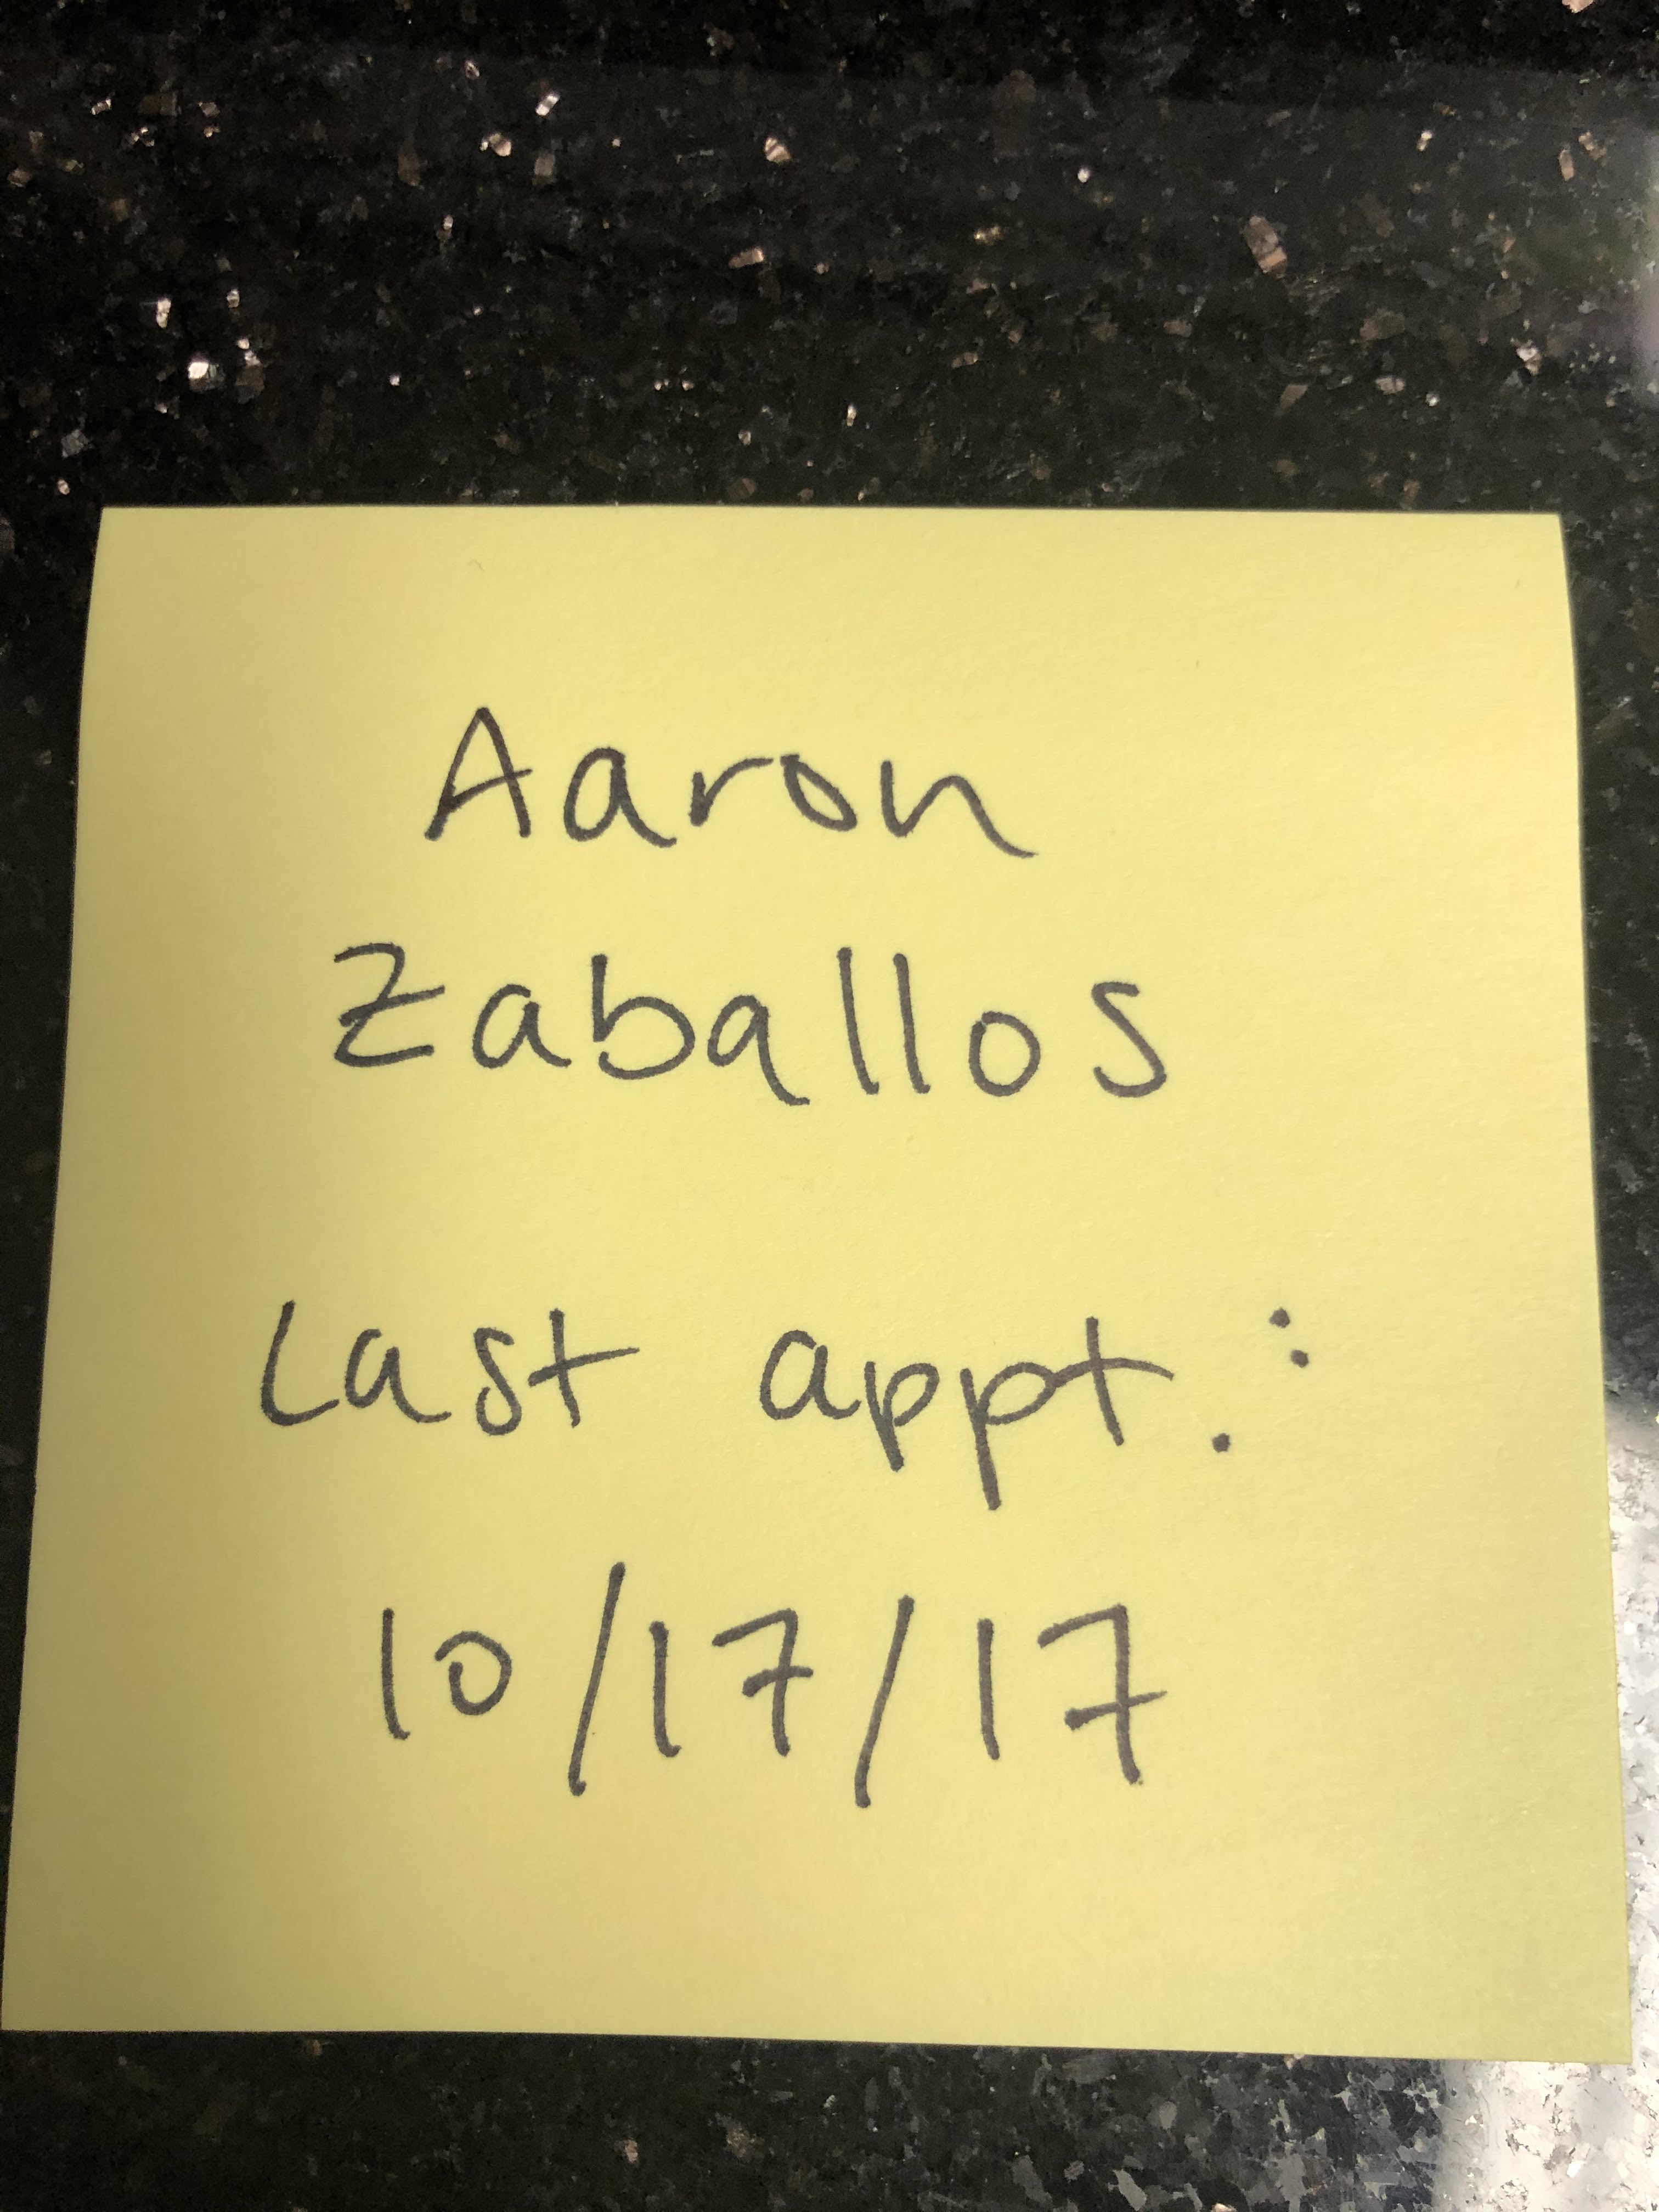 Aaron
Zaballos
Last appt.:
10/17/17